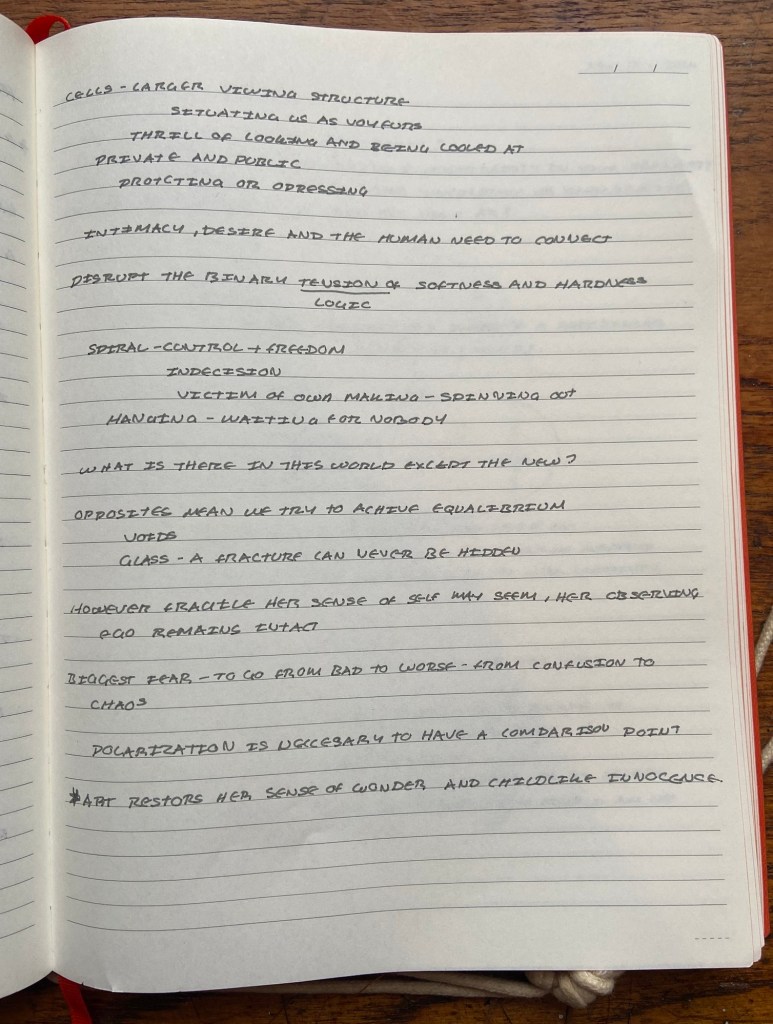 / /
CELLS - LARGER VIEWING STRUCTURE
SITUATING US AS VOYEURS
THRILL OF LOOKING AND BEING LOOKED AT
PRIVATE AND PUBLIC
PROTCTING OR OPRESSING
INTIMACY, DESIRE AND THE HUMAN NEED TO CONNECT
DISRUPT THE BINARY TENSION OF SOFTNESS AND HARDNESS
LOGIC
SPIRAL - CONTROL + FREEDOM
INDECISION
VICTIM OF OWN MAKING - SPINNING OUT
HANGING - WAITING FOR NOBODY
WHAT IS THERE IN THIS WORLD EXCEPT THE NEW?
OPPOSITES MEAN WE TRY TO ACHIVE EQUALIBRIUM
VOIDS
GLASS - A FRACTURE CAN NEVER BE HIDDEN
HOWEVER FRAGILE HER SENSE OF SELF MAY SEEM, HER OBSERVING
EGO REMAINS INTACT
BIGGEST FEAR - TO GO FROM BAD TO WORSE - FROM CONFUSION TO
CHAOS
POLARIZATION IS NECCESARY TO HAVE A COMPARISON POINT
*ART RESTORS HER SENSE OF WONDER AND CHILDLIKE INNOCENCE